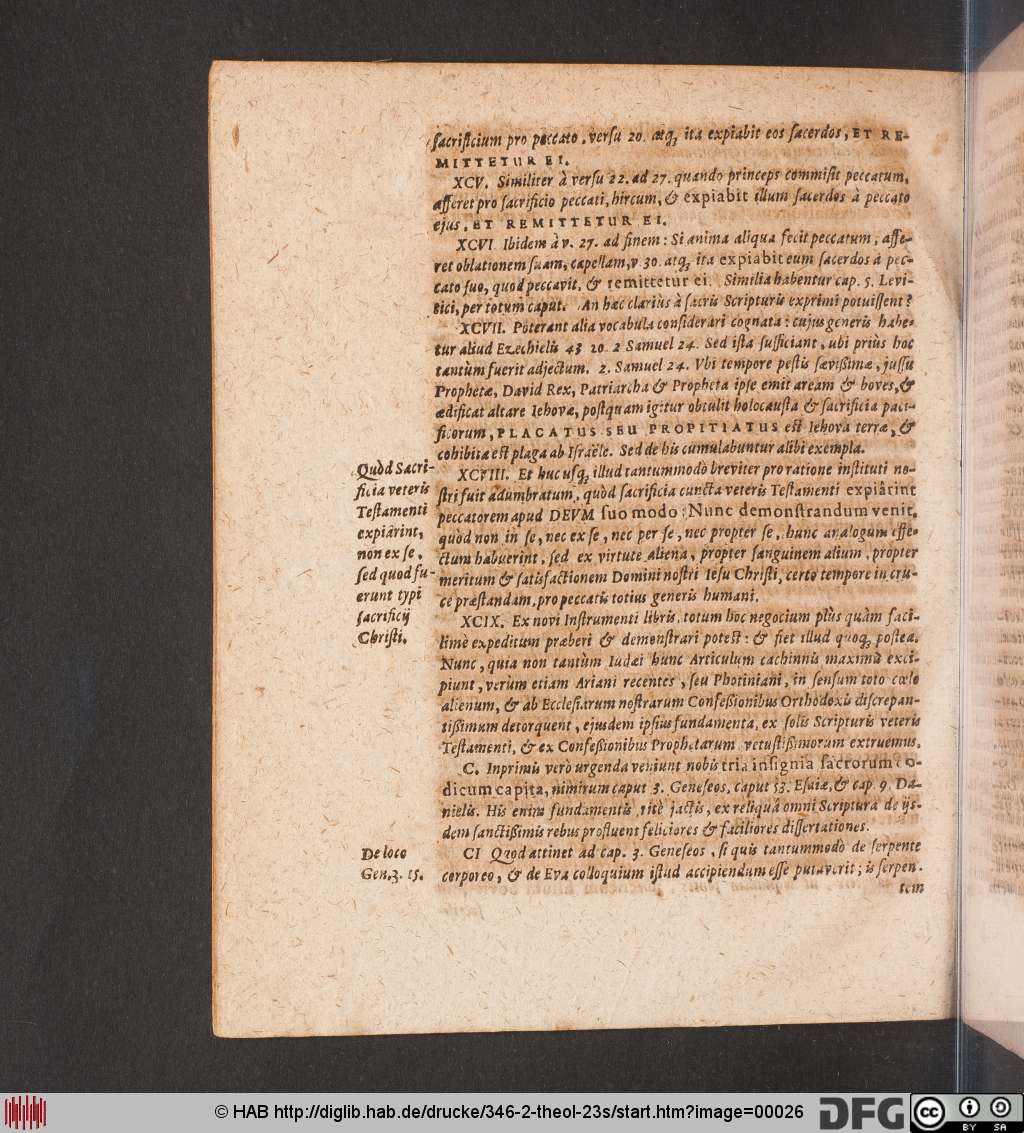 sacrificium pro peccato, versu 20. atq; ita expiabit eos sacerdos, ET RE-
MITTETUR EI.
XCV. Similiter à versu 22. ad 27. quando princeps commisit peccatum,
afferet pro sacrificio peccati, hircum, & expiabit illum sacerdos à peccato
ejus, ET REMITTETUR EI.
XCVI Ibidem à v. 27. ad finem: Si anima aliqua fecit peccatum, affe-
ret oblationem suam, capellam, v 30. atq; ita expiabit eum sacerdos à pec-
cato suo, quod peccavit, & remittetur ei. Similia habentur cap. 5. Levi-
tici, per totum caput. An hæc clariùs à sacris Scripturis exprimi potuissent?
XCVII. Poterant alia vocabula considerari cognata: cujus generis habe-
tur aliud Ezechielis 43 20. 2 Samuel 24. Sed ista sufficiant, ubi priùs hoc
tantùm fuerit adjectum. 2. Samuel 24. Vbi tempore pestis sævißimæ, jussu
Prophetæ, David Rex, Patriarcha & Propheta ipse emit aream & boves, &
ædificat altare Iehovæ, postquam igitur obtulit holocausta & sacrificia paci-
ficorum, PLACATUS SEU PROPITIATUS est Iehova terræ, &
cohibita est plaga ab Israële. Sed de his cumulabuntur alibi exempla.
Quòd Sacri-
ficia veteris
Testamenti
expiârint,
non ex se,
sed quod fu-
erunt typi
sacrificij
Christi.
XCVIII. Et huc usq; illud tantummodò breviter pro ratione instituti no-
stri fuit adumbratum, quòd sacrificia cuncta veteris Testamenti expiârint
peccatorem apud DEUM suo modo: Nunc demonstrandum venit,
quòd non in se, nec ex se, nec per se, nec propter se, hunc analogum effe-
ctum habuerint, sed ex virtute aliena, propter sanguinem alium, propter
meritum & satisfactionem Domini nostri Iesu Christi, certo tempore in cru-
ce præstandam, pro peccatis totius generis humani.
XCIX. Ex novi Instrumenti libris, totum hoc negocium plùs quàm faci-
limè expeditum præberi & demonstrari potest: & fiet illud quoq; posteà.
Nunc, quia non tantùm Iudæi hunc Articulum cachinnis maximis exci-
piunt, verùm etiam Ariani recentes, seu Photiniani, in sensum toto cœlo
alienum, & ab Ecclesiarum nostrarum Confeßionibus Orthodoxis discrepan-
tißimum detorquent, ejusdem ipsius fundamenta, ex solis Scripturis veteris
Testamenti, & ex Confeßionibus Prophetarum vetustißimorum extruemus.
C. Inprimis verò urgenda veniunt nobis tria insignia sacrorum co-
dicum capita, nimirum caput 3. Geneseos, caput 53. Esaiæ, & cap 9 Da-
nielis. His enim fundamentis ritè jactis, ex reliquâ omni Scriptura de ijs-
dem sanctißimis rebus profluent feliciores & faciliores dissertationes.
De loco
Gen. 3. 15.
CI Quod attinet ad cap. 3. Geneseos, si quis tantummodò de serpente
corporeo, & de Eva colloquium istud accipiendum esse putaverit; is serpen-
tem
© HAB http://diglib.hab.de/drucke/346-2-theol-23s/start.htm?image=00026
DFG
cc BY SA